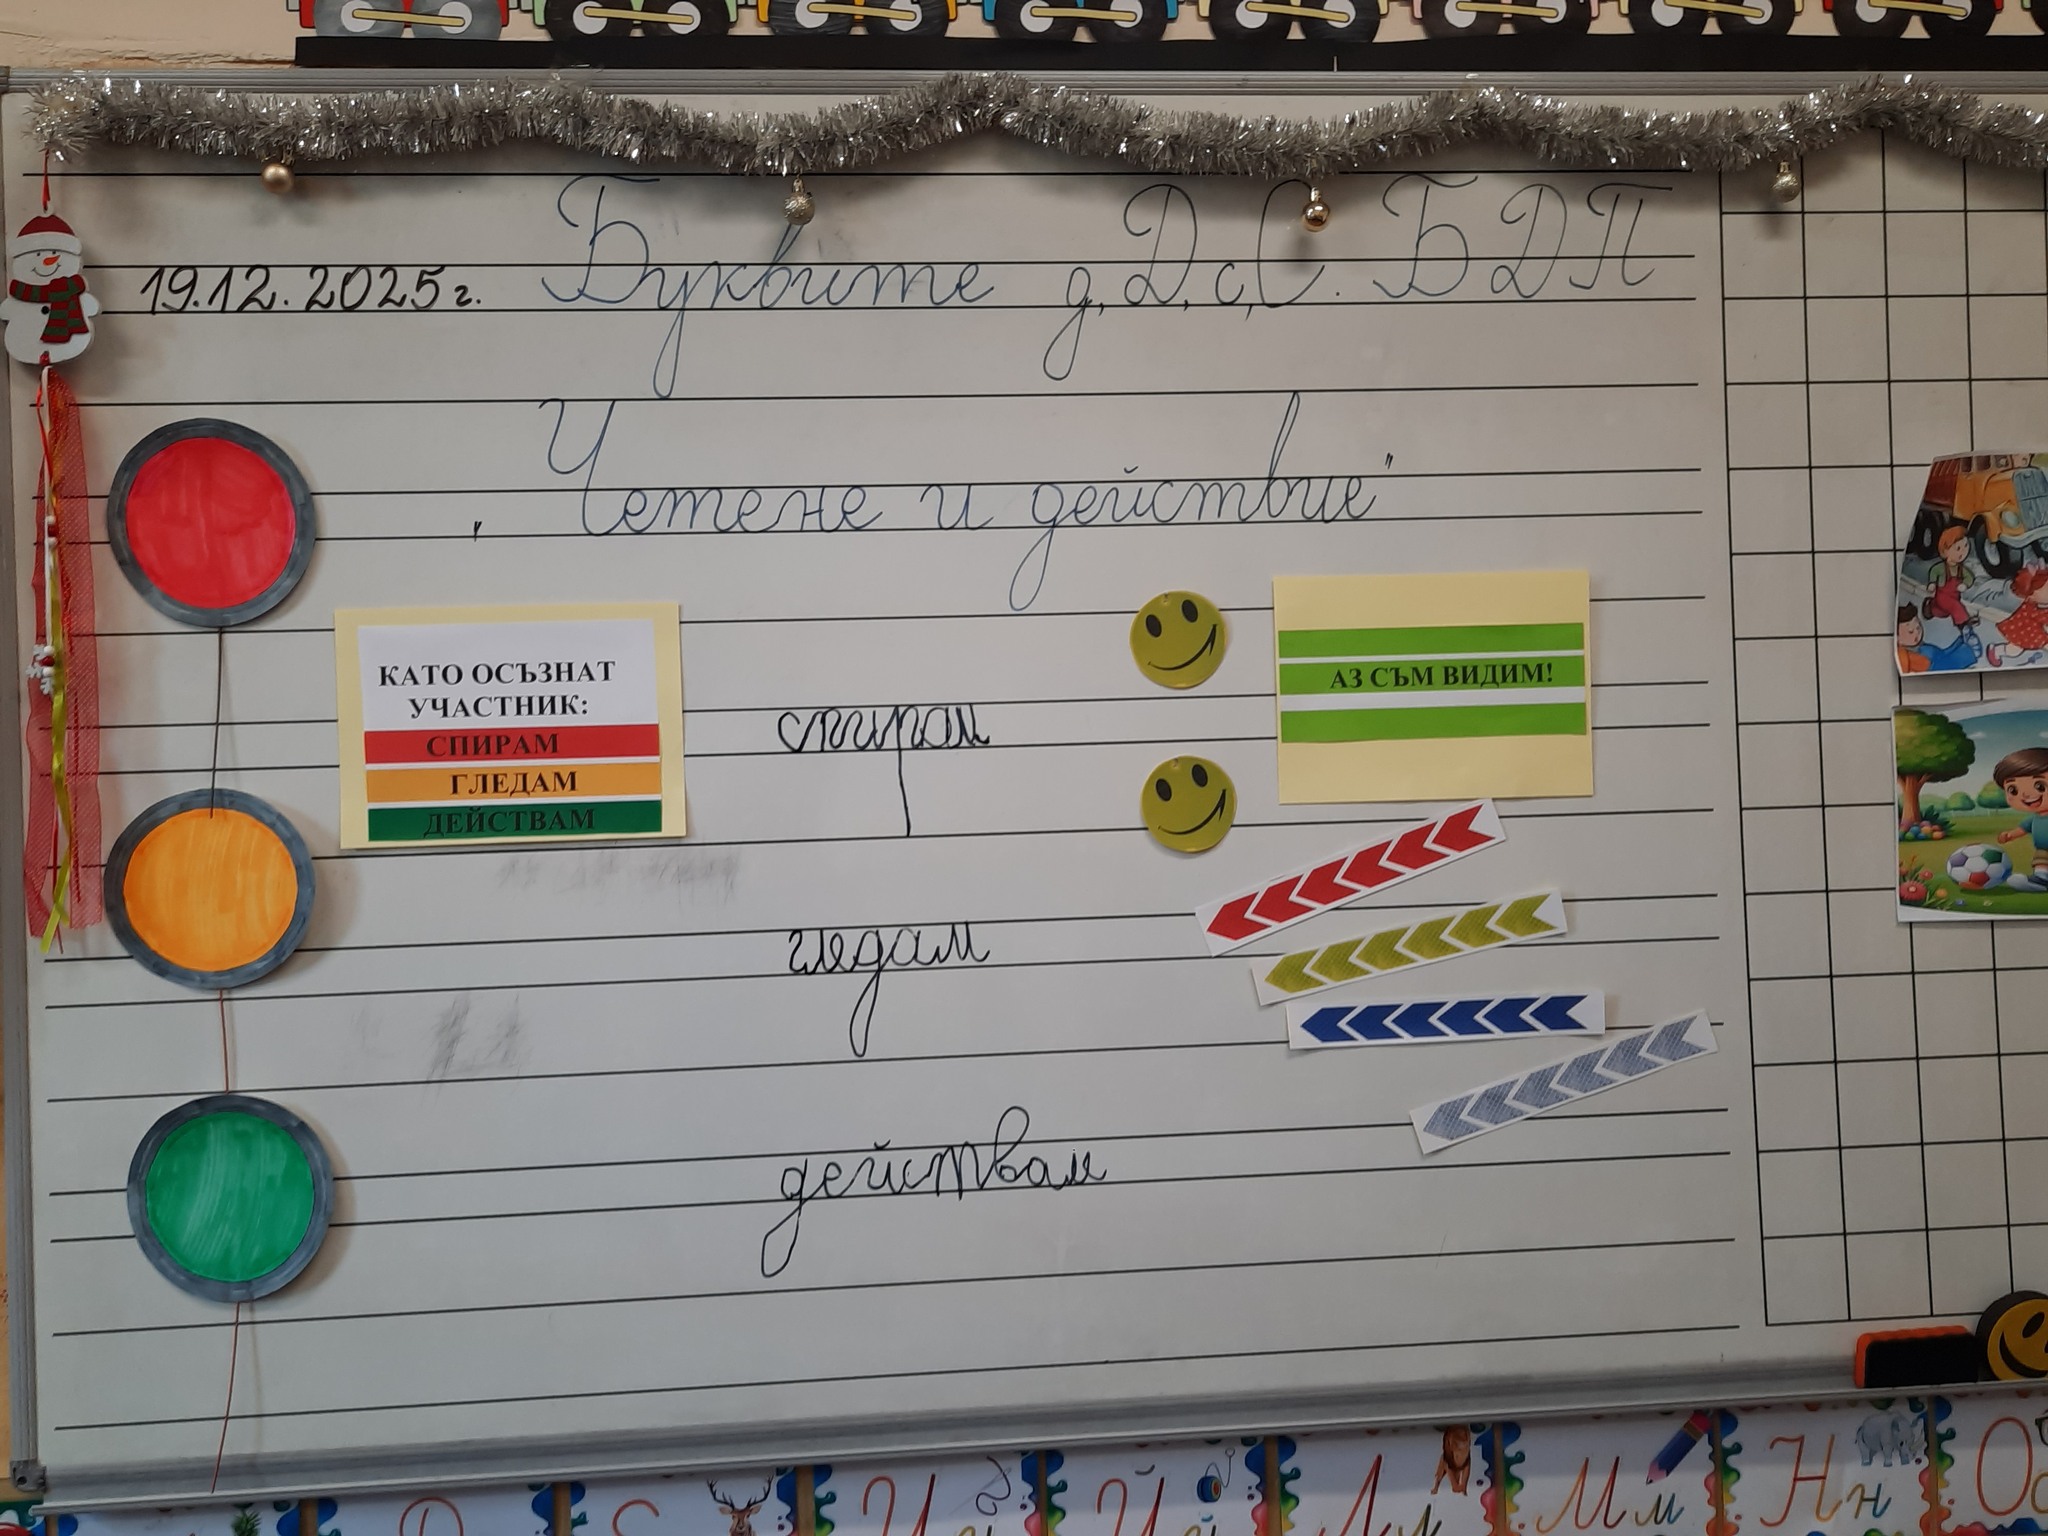 19.12.2025г. Буквите д, Д, с, С. БДП
„Четене и действие"
КАТО ОСЪЗНАТ
УЧАСТНИК:
СПИРАМ
ГЛЕДАМ
ДЕЙСТВАМ
АЗ СЪМ ВИДИМ!
спирам
гледам
действам
Мм Нн